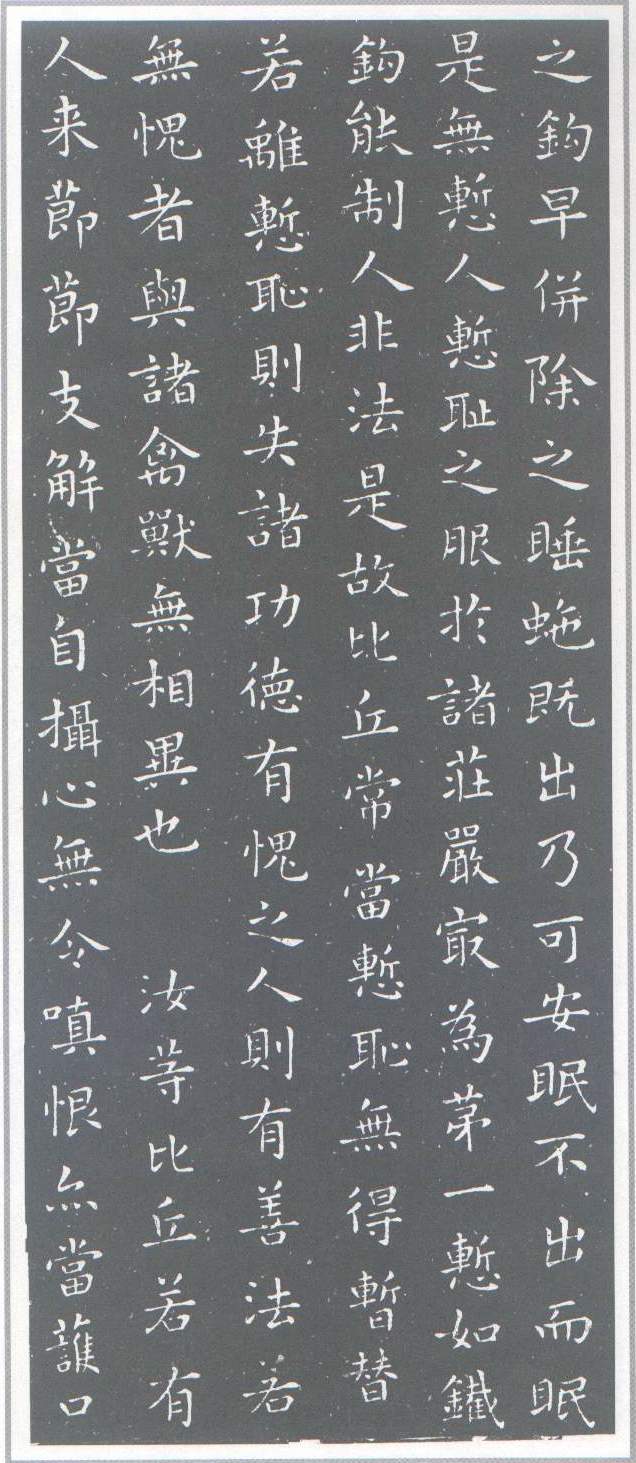 之鈎早併除之睡虵既出乃可安眠不出而眠
是無慙人慙耻之服於諸莊嚴㝡為苐一慙如鐵
鈎能制人非法是故比丘常當慙恥無得暫替
若離慙恥則失諸功德有愧之人則有善法若
無愧者與諸禽獸無相異也 汝等比丘若有
人来莭莭支解當自攝心無令嗔恨亦當護口